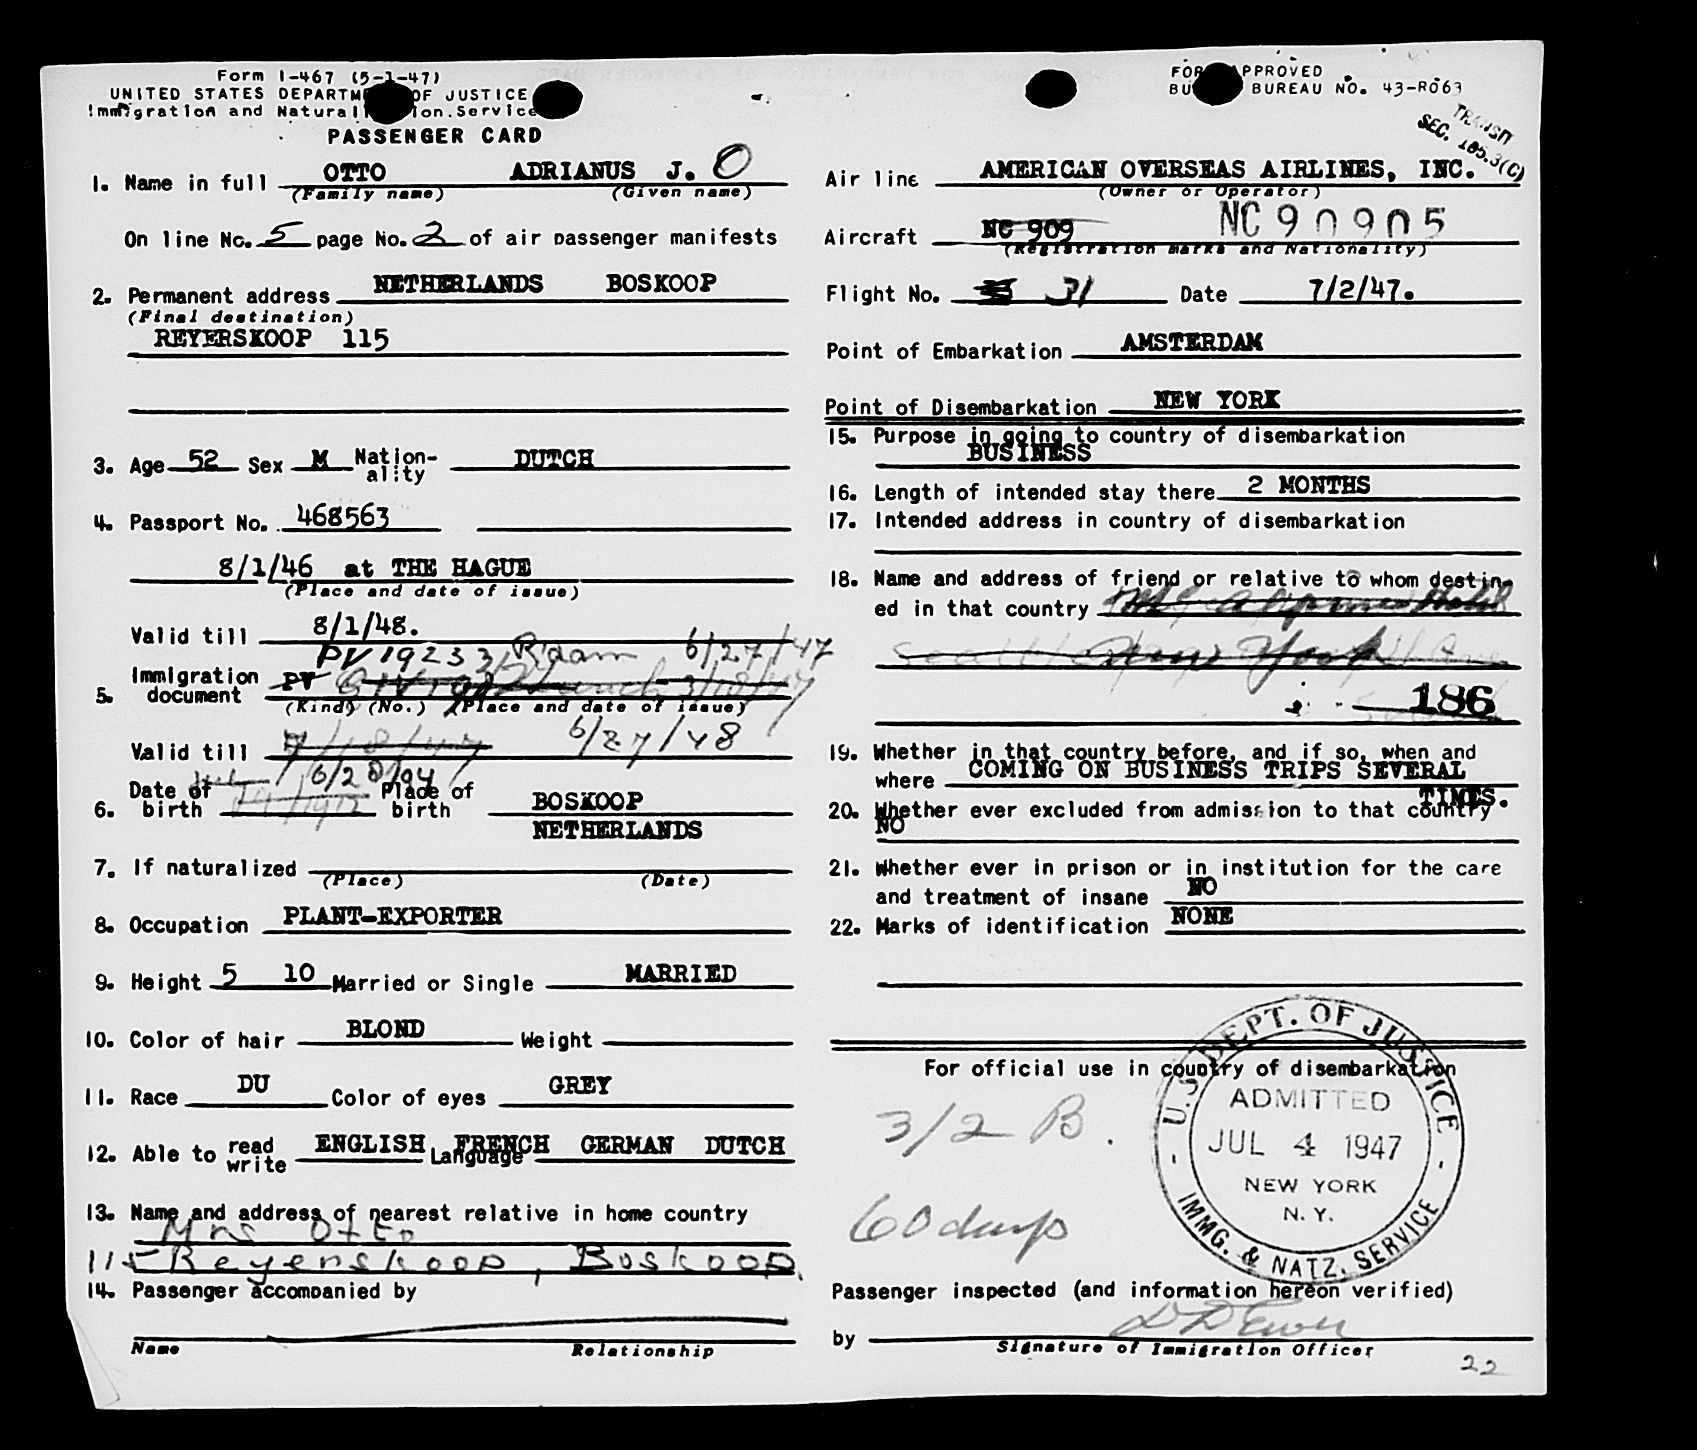 Form I-467 (5-1-47)
UNITED STATES DEPARTM OF JUSTICE
Immigration and Natural ion Service
PASSENGER CARD
1. Name in full OTTO ADRIANUS J. O
(Family name) (Given name)
On line No. 5 page No. 2 of air passenger manifests
2. Permanent address NETHERLANDS BOSKOOP
(Final destination)
REYERSKOOP 115
3. Age 52 Sex M Nation-ality DUTCH
4. Passport No. 468563
8/1/46 at THE HAGUE
(Place and date of issue)
Valid till 8/1/48.
PV 19233 R'dam 6/27/47
5. Immigration document PV
(Kind) (No.) (Place and date of issue)
Valid till 7/18/47 6/27/48
6. Date of birth 6/28/94 Place of birth BOSKOOP
NETHERLANDS
7. If naturalized
(Place) (Date)
8. Occupation PLANT-EXPORTER
9. Height 5 10 Married or Single MARRIED
10. Color of hair BLOND Weight
11. Race DU Color of eyes GREY
12. Able to read write ENGLISH Language FRENCH GERMAN DUTCH
13. Name and address of nearest relative in home country
Mrs Otto
115 Reyerskoop, Boskoop.
14. Passenger accompanied by
Name Relationship
FOR APPROVED
BU BUREAU NO. 43-R063
TRANSIT
SEC. 165.3(C)
Air line AMERICAN OVERSEAS AIRLINES, INC.
(Owner or Operator)
Aircraft NC 909 NC90905
(Registration marks and Nationality)
Flight No. 31 Date 7/2/47.
Point of Embarkation AMSTERDAM
Point of Disembarkation NEW YORK
15. Purpose in going to country of disembarkation
BUSINESS
16. Length of intended stay there 2 MONTHS
17. Intended address in country of disembarkation
18. Name and address of friend or relative to whom destin-
ed in that country
York
186
19. Whether in that country before, and if so, when and
where COMING ON BUSINESS TRIPS SEVERAL
TIMES.
20. Whether ever excluded from admission to that country
NO
21. Whether ever in prison or in institution for the care
and treatment of insane NO
22. Marks of identification NONE
For official use in country of disembarkation
3/2 B.
60 days
U.S. DEPT. OF JUSTICE
ADMITTED
JUL 4 1947
NEW YORK
N. Y.
IMMG. & NATZ. SERVICE
Passenger inspected (and information hereon verified)
by
Signature of Immigration Officer
22